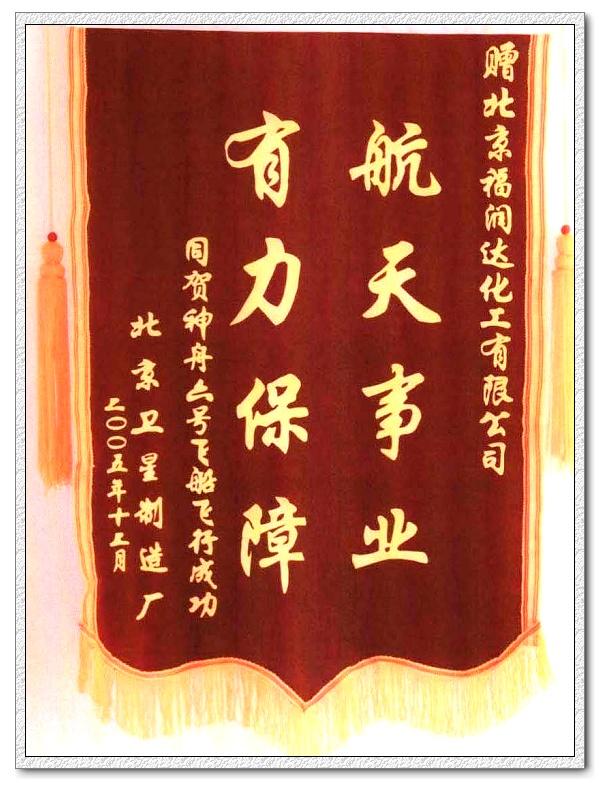 赠北京福润达化工有限公司
航天事业
有力保障
同贺神舟六号飞船飞行成功
北京卫星制造厂
二〇〇五年十二月